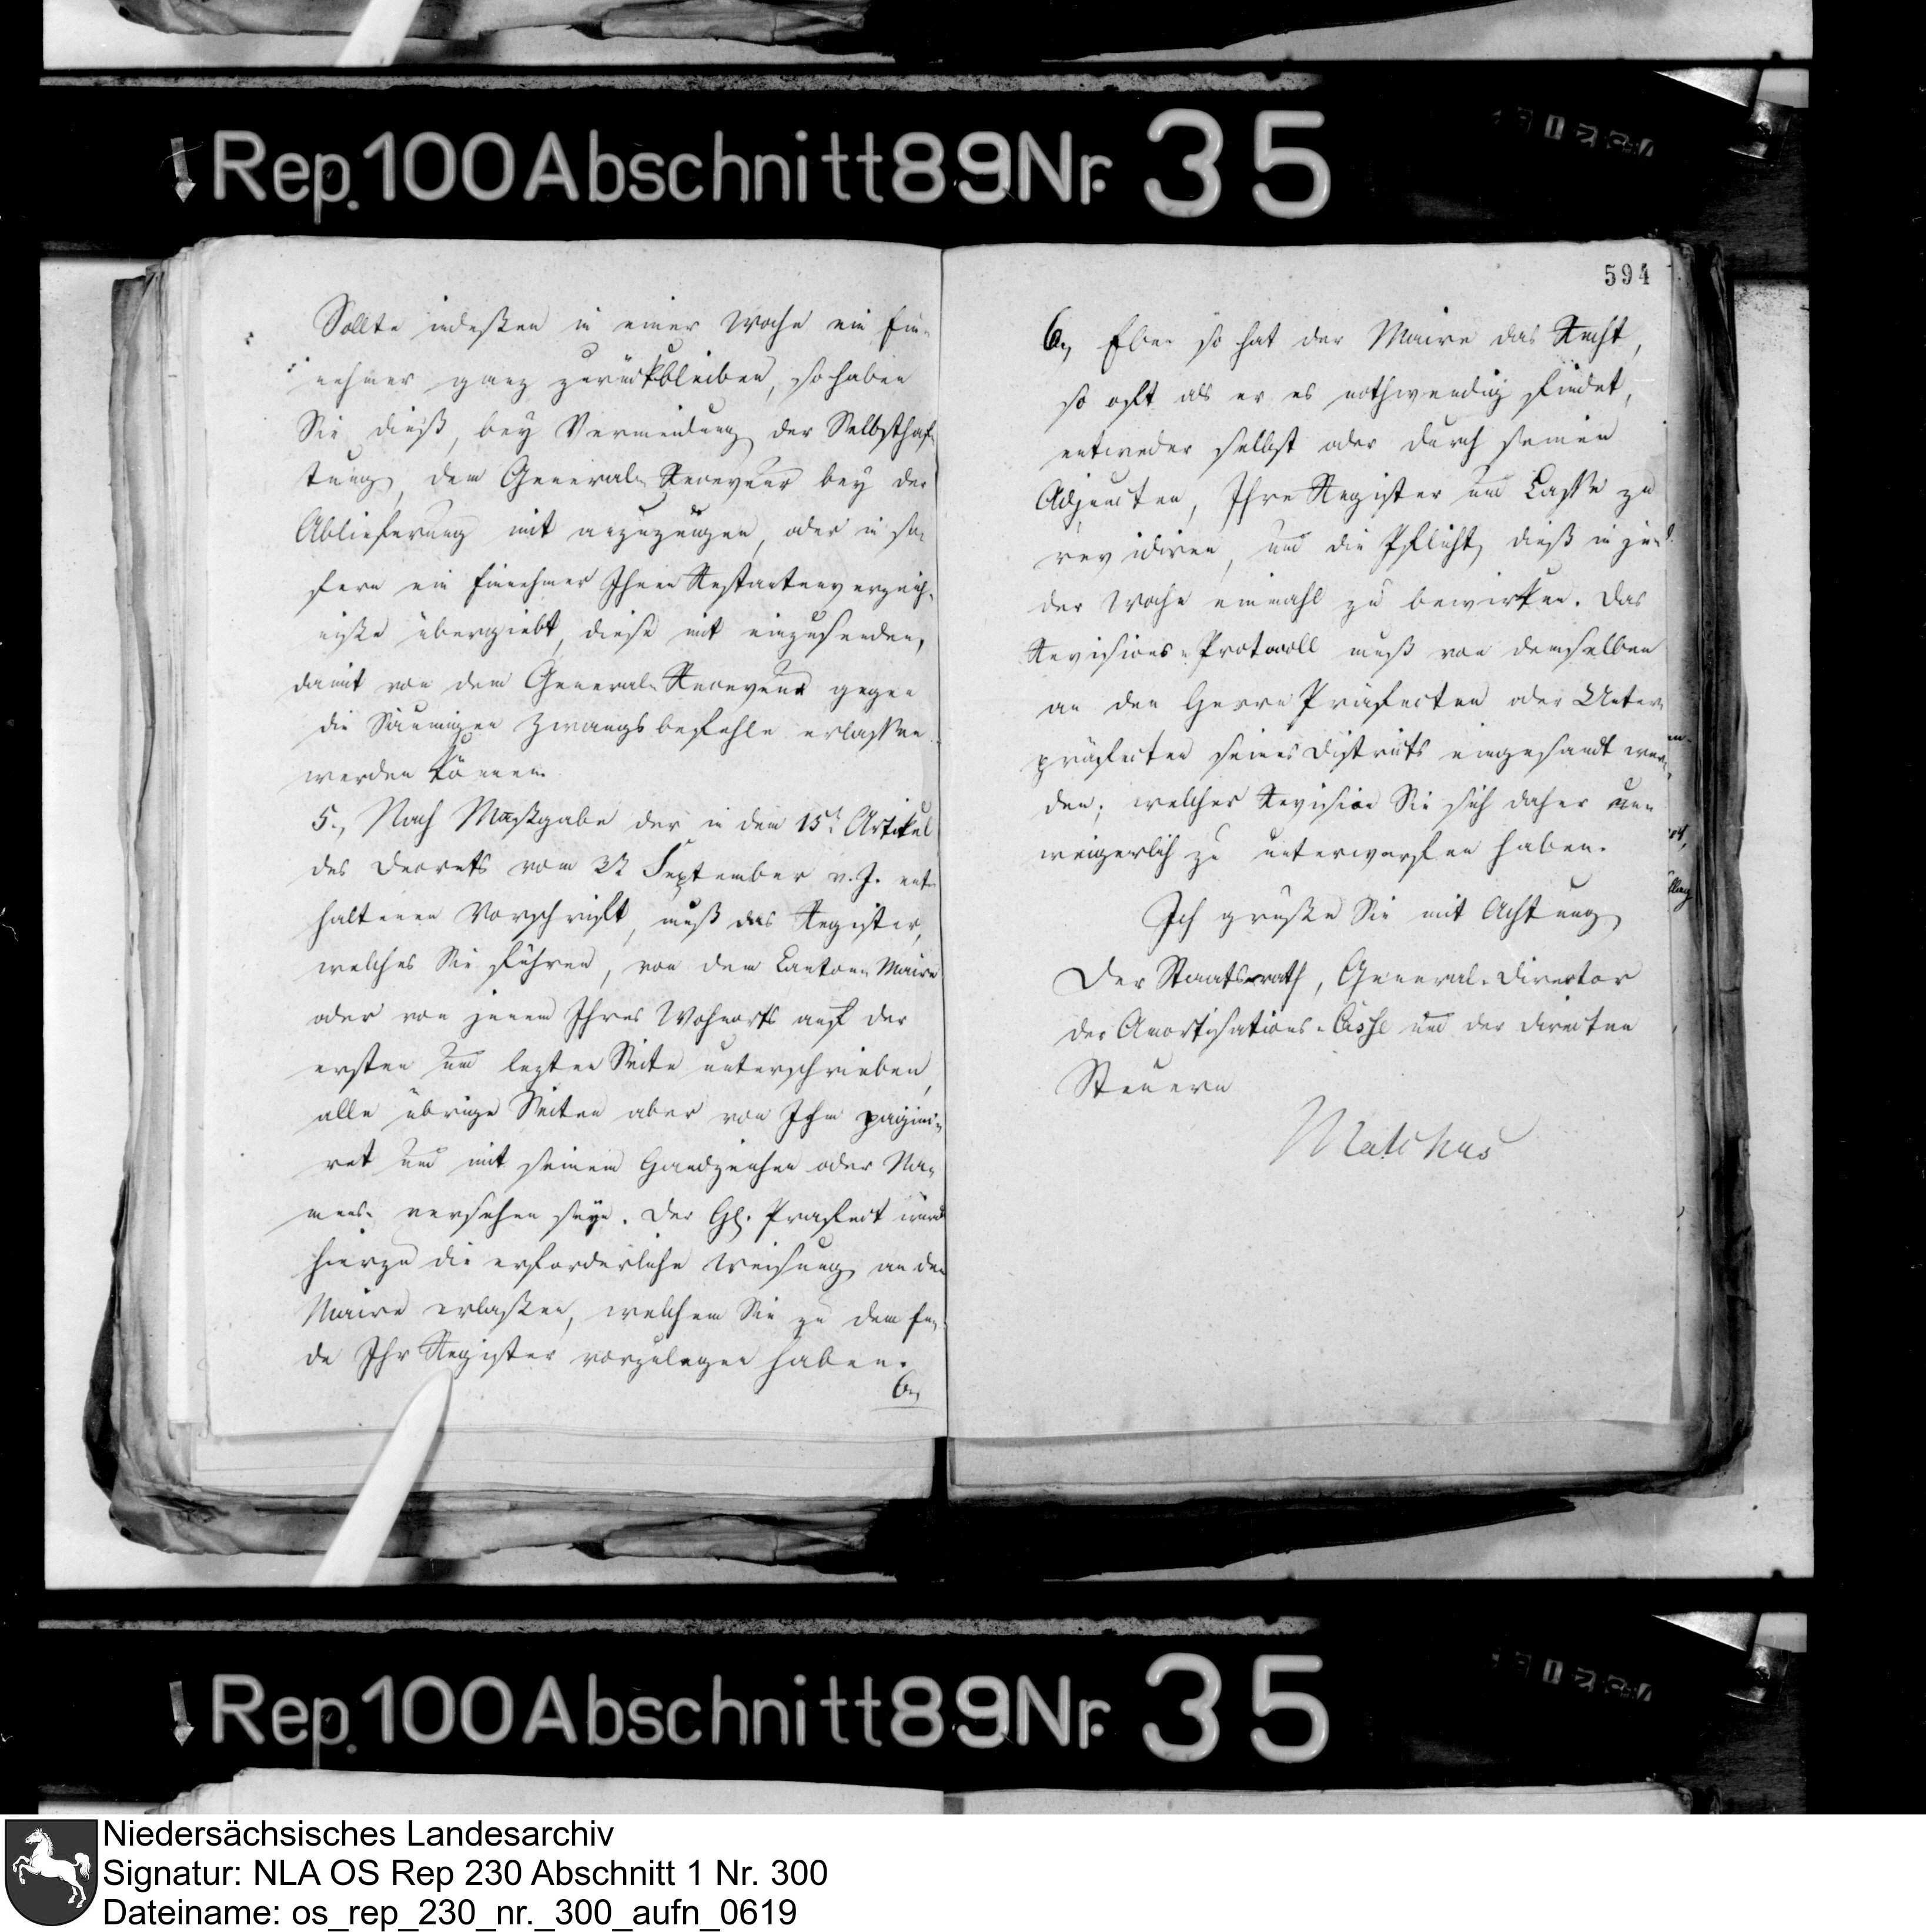 Rep. 100 Abschnitt 89 Nr. 35
Sollte indeßen in einer Woche ein Ein-
nehmer ganz zurückbleiben, so haben
Sie dieß, bey Vermeidung der Selbsthaf-
tung, dem General-Receveur bey der
Ablieferung mit anzuzeigen, oder in so
fern ein Einehmer Ihnen Restantenverzeich-
niße übergiebt, diese mit einzusenden,
damit von dem General-Receveur gegen
die Säumigen Zwangsbefehle erlassen
werden können.
5., Nach Maßgabe der in dem 15t Artikel
des Decrets vom September v. J. ent-
haltenen Vorschrift, muß das Register,
welches Sie führen, von dem Canton-Maire
oder von jenem Ihres Wohnorts auf der
ersten und lezten Seite unterschrieben,
alle übrige Seiten aber von Ihm pagini-
ret und mit seinem Handzeichen oder Na-
mens- versehen seyn. Der Hl. Präfect wird
hierzu die erforderliche Weisung an den
Maire erlaßen, welchem Sie zu dem En-
de Ihr Register vorzulegen haben.
6.,
594
6., Eben so hat der Maire das Recht,
so oft als er es nothwendig findet,
entweder selbst oder durch seinen
Adjuncten, Ihre Register und Casse zu
revidiren, und die Pflicht, dieß in je-
der Woche einmahl zu bewirken. Das
Revisions-Protocoll muß von demselben
an den Herrn Präfecten oder Unter-
präfecten seines Districts eingesandt wer-
den; welcher Revision Sie sich daher un-
weigerlich zu unterwerfen haben.
Ich grüße Sie mit Achtung
Der Staatsrath, General-Director
der Amortisations-Casse und der directen
Steuern
Malchus
Rep. 100 Abschnitt 89 Nr. 35
Niedersächsisches Landesarchiv
Signatur: NLA OS Rep 230 Abschnitt 1 Nr. 300
Dateiname: os_rep_230_nr._300_aufn_0619